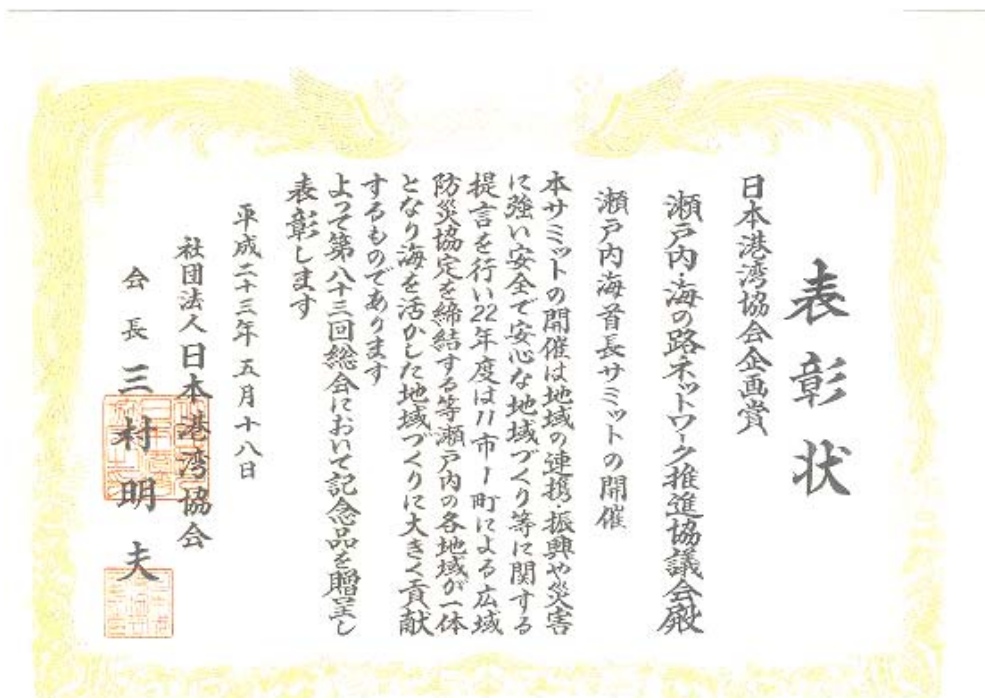 表彰状
日本港湾協会企画賞
瀬戸内・海の路ネットワーク推進協議会殿
瀬戸内海首長サミットの開催
本サミットの開催は地域の連携・振興や災害
に強い安全で安心な地域づくり等に関する
提言を行い22年度は11市1町による広域
防災協定を締結する等瀬戸内の各地域が一体
となり海を活かした地域づくりに大きく貢献
するものであります
よって第八十三回総会において記念品を贈呈し
表彰します
平成二十三年五月十八日
社団法人日本港湾協会
会長三村明夫